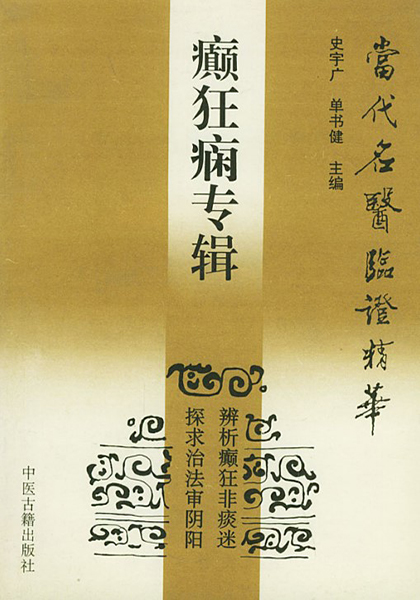 當代名醫臨證精華
史宇广 单书健 主编
癫狂痫专辑
辨析癫狂非痰迷
探求治法审阴阳
中医古籍出版社